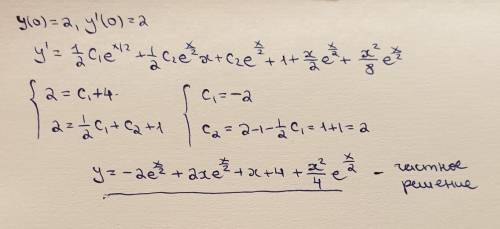 y(0)=2, y'(0)=2
y' = 1/2 c₁e^(x/2) + 1/2 c₂e^(x/2) x + c₂e^(x/2) + 1 + x/2 e^(x/2) + x²/8 e^(x/2)
{ 2 = c₁+4 { c₁ = -2
2 = 1/2 c₁ + c₂ + 1 c₂ = 2-1-1/2 c₁ = 1+1 = 2
y = -2e^(x/2) + 2xe^(x/2) + x + 4 + x²/4 e^(x/2) - частное
решение